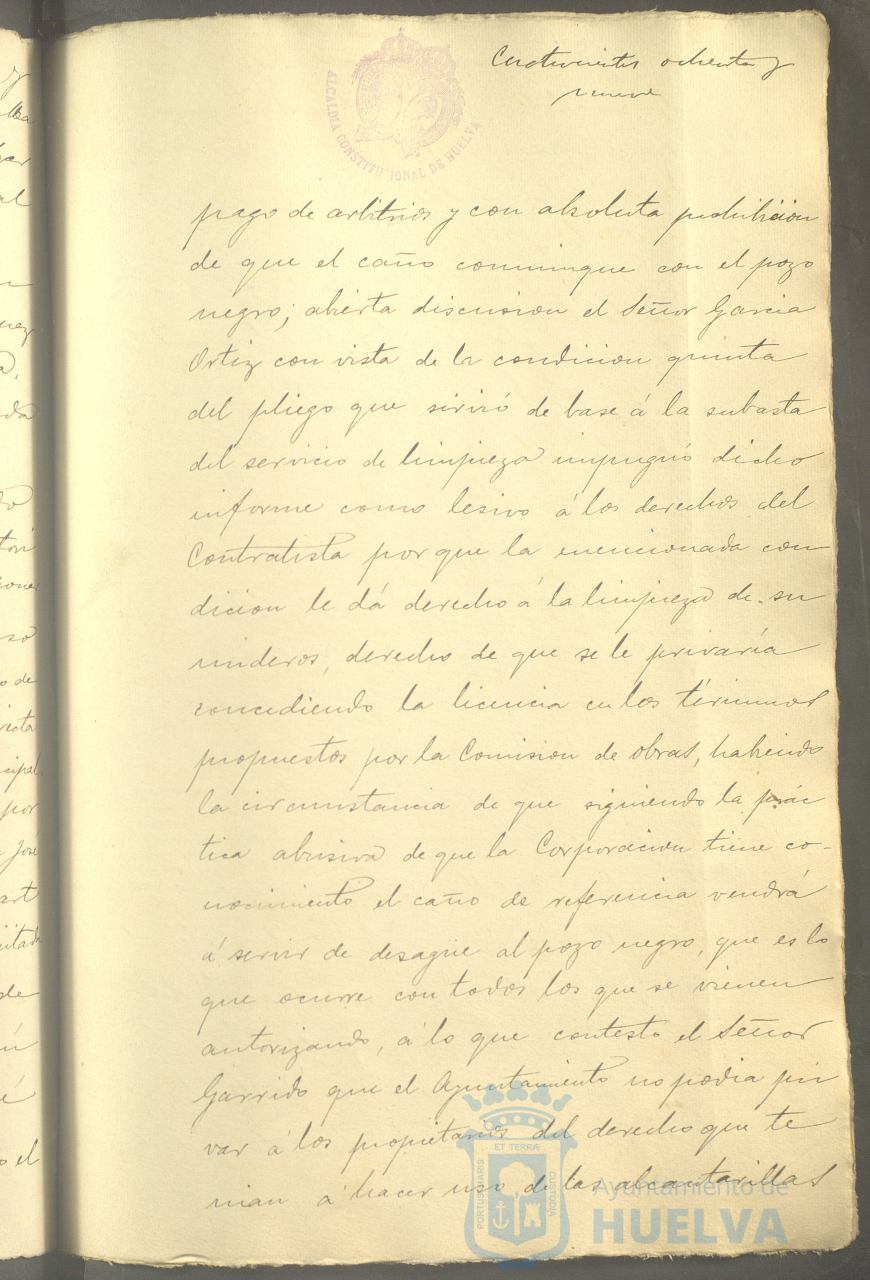 Cuatrocientos ochenta y
nueve
ALCALDIA CONSTITUCIONAL DE HUELVA
pago de arbitrios y con absoluta prohibicion
de que el caño comunique con el pozo
negro; abierta discusion el Señor Garcia
Ortiz con vista de la condicion quinta
del pliego que sirvió de base á la subasta
del servicio de limpieza impugnó dicho
informe como lesivo á los derechos del
Contratista por que la mencionada con
dicion le dá derecho á la limpieza de su
mideros, derecho de que se le privaría
concediendo la licencia en los términos
propuestos por la Comision de obras, habiendo
la circunstancia de que siguiendo la prác
tica abusiva de que la Corporacion tiene co-
nocimiento el caño de referencia vendrá
á servir de desagüe al pozo negro, que es lo
que ocurre con todos los que se vienen
autorizando, á lo que contestó el Señor
Garrido que el Ayuntamiento no podia pri
var á los propietarios del derecho que te
nian á hacer uso de las alcantarillas
PORTUS MARIS ET TERRÆ CUSTODIA
Ayuntamiento de
HUELVA